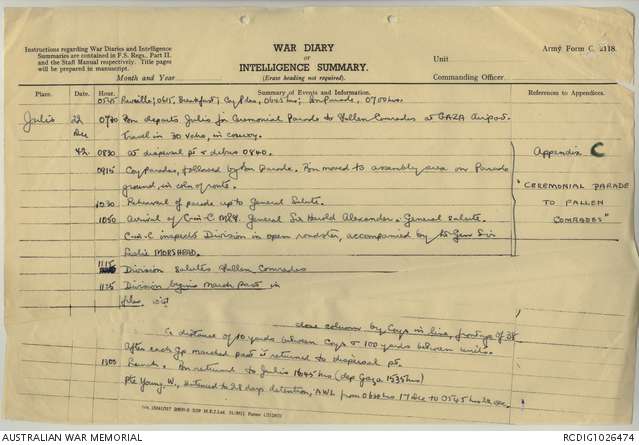 Instructions regarding War Diaries and Intelligence
Summaries are contained in F.S. Regs., Part II.
and the Staff Manual respectively. Title pages
will be prepared in manuscript.
WAR DIARY
or
INTELLIGENCE SUMMARY.
(Erase heading not required).
Army Form C. 2118.
Month and Year
Unit
Commanding Officer
Place.
Date.
Hour.
Summary of Events and Information.
References to Appendices.
0530 Reveille; 0615, Breakfast; Coy Pdes, 0645 hrs; Bn Parade, 0700 hrs.
Julis 22 0740 Bn departs Julis for Ceremonial Parade to Fallen Comrades at GAZA Airport.
Dec Travel in 30 vehs, in convoy.
42 0830 at dispersal pt & debus 0840.
0915 Coy Parades, followed by Bn Parade. Bn moved to assembly area on Parade
ground, in coln of route.
1030 Rehearsal of parade up to General Salute.
1050 Arrival of C-in-C General Sir Harold Alexander. General Salute.
C-in-C inspects Division in open roadster, accompanied by Lt-Gen Sir
Leslie MORSHEAD.
1115 Division Salutes Fallen Comrades
1125 Division begins March Past in
Appendix C
"CEREMONIAL PARADE
TO FALLEN
COMRADES"
close column by Coys in line, frontage of 38
a distance of 10 yards between Coys & 100 yards between units.
After each Gp marched past it returned to dispersal pt.
1300 Lunch. Bn returned to Julis 1645 hrs (dep Gaza 1535 hrs)
Pte Young, W., sentenced to 28 days detention, AWL from 17 Dec to
AUSTRALIAN WAR MEMORIAL
RCDIG1026474